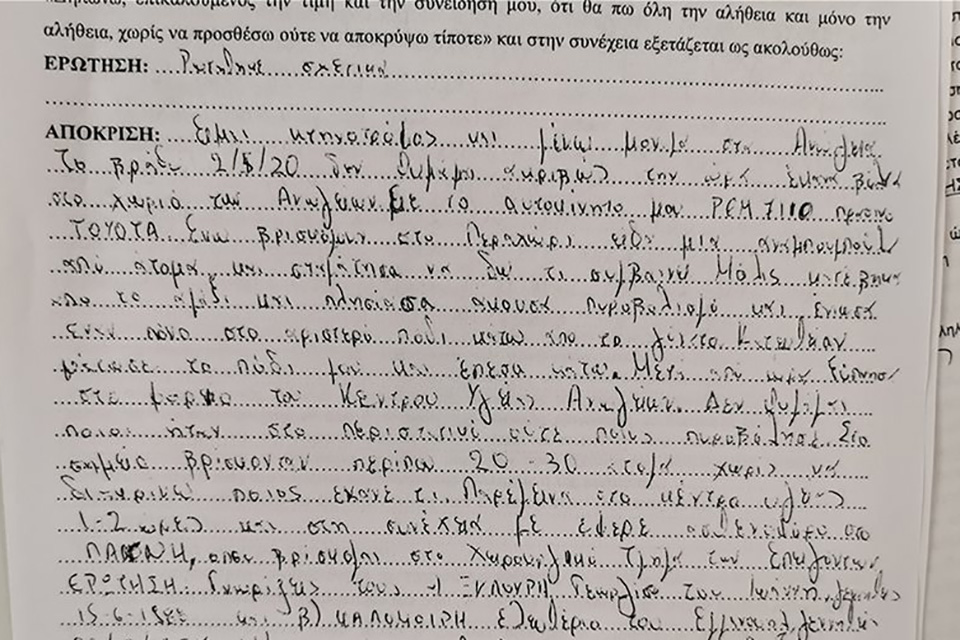 επικαλούμενος την τιμή και την συνείδησή μου, ότι θα πω όλη την αλήθεια και μόνο την
αλήθεια, χωρίς να προσθέσω ούτε να αποκρύψω τίποτε» και στην συνέχεια εξετάζεται ως ακολούθως:
ΕΡΩΤΗΣΗ: σχετικά
ΑΠΟΚΡΙΣΗ: Είμαι κτηνοτρόφος και μένω μόνιμα στα Ανώγεια.
Το βράδυ 2/5/20 δεν θυμάμαι ακριβώς την ώρα έκανα βόλτα
στο χωριό των Ανωγείων με το αυτοκίνητό μου ΡΕΜ 7110
ΤΟΥΟΤΑ. Ενώ βρισκόμουν στο Περαχώρι είδα μια αναμπουμπούλα
από άτομα και σταμάτησα να δω τι συμβαίνει Μόλις κατέβηκα
από το αμάξι και πλησίασα άκουσα πυροβολισμό και ένιωσα
έναν πόνο στο αριστερό πόδι κάτω από το γόνατο
το πόδι μου και έπεσα κάτω. Μετά από ώρα ξύπνησα
στο φορείο του Κέντρου Υγείας Ανωγείων. Δεν θυμάμαι
ποιοι ήταν στο περιστατικό ούτε ποιος πυροβόλησε. Στο
σημείο βρίσκονταν περίπου 20-30 άτομα χωρίς να
διακρίνω ποιος έκανε τι Παρέμεινα στο κέντρο υγείας
1-2 ώρες και στη συνέχεια με έφερε ασθενοφόρο στο
ΠΑΓΝΗ, όπου βρίσκομαι στο Χειρουργικό Τμήμα των Επειγόντων
ΕΡΩΤΗΣΗ: Γνωρίζεις τους ΞΥΛΟΥΡΗ Γεώργιο του Ιωάννη
15-6-198 και β) ΚΑΛΟΜΟΙΡΗ Ελευθέριο του Εμμανουήλ